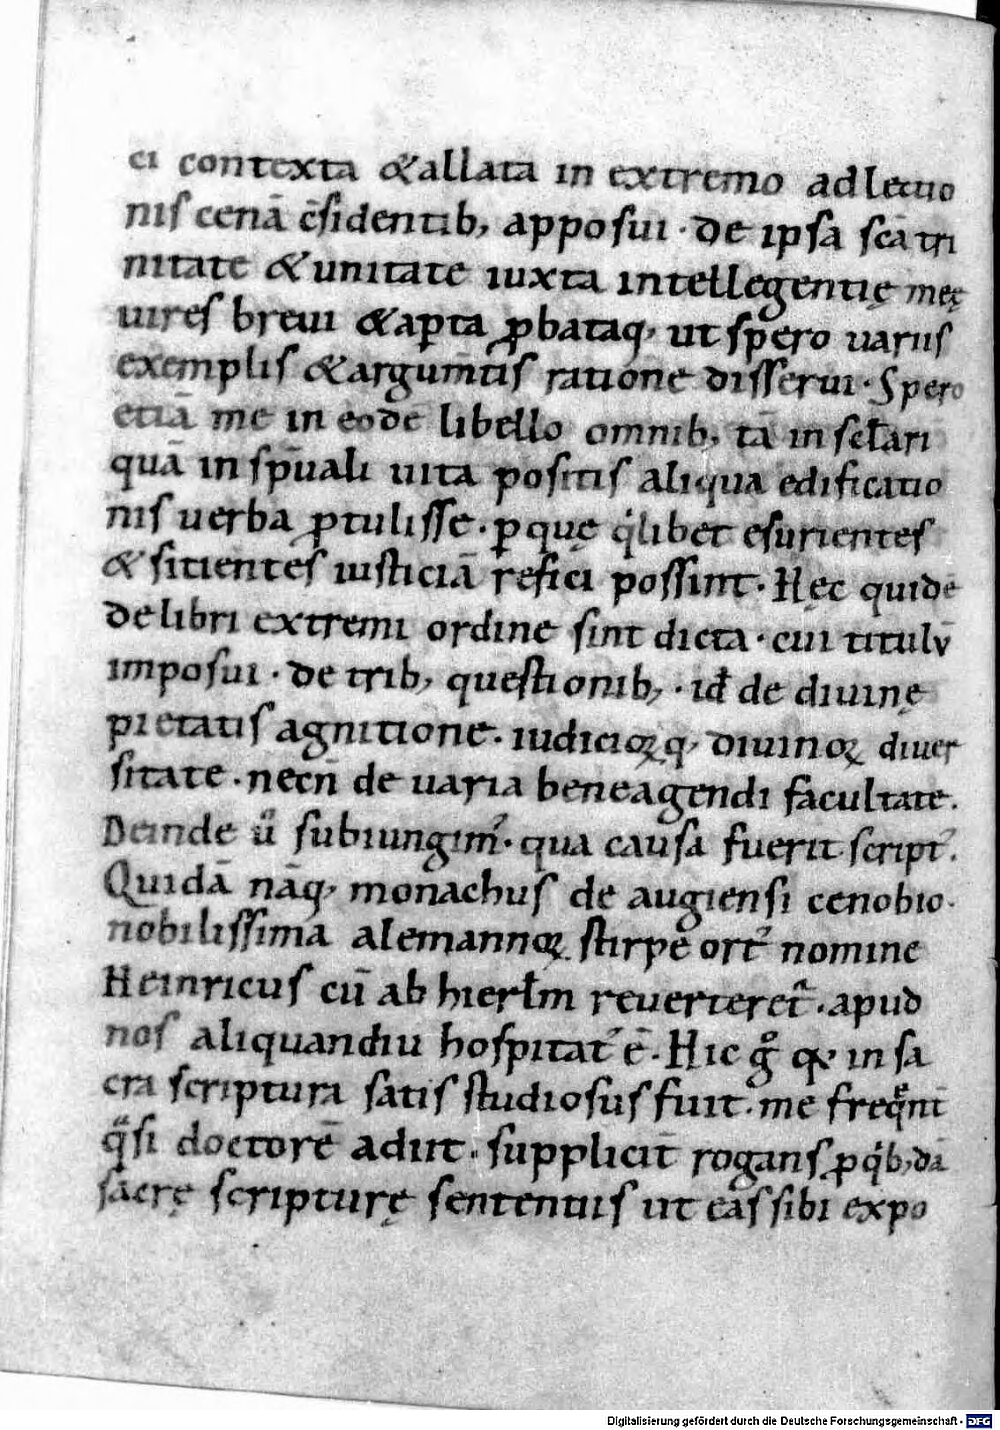 ei contexta & allata in extremo ad lectio
nis cenā c̄sidentib; apposui · de ipsa scā tri
nitate & unitate iuxta intellegentię męę
uires breui & apta ꝓbataq; ut spero uariis
exemplis & argum̄tis ratione disserui · Spero
etiā me in eodē libello omnib; tā in sclari
quā in sp̄uali uita positis aliqua edificatio
nis uerba ꝓtulisse · ꝑ quę q̇libet esurientes
& sitientes iusticiā refici possint · Hęc quidē
de libri extremi ordine sint dicta · cui titulū
imposui · de trib; questionib; · id̄ de diuinę
pietatis agnitione · iudicioꝝq; diuinoꝝ diuer
sitate · necn̄ de uaria bene agendi facultate.
Deinde ů subiungim᾽ · qua causa fuerit script᾽.
Quidā nāq; monachus de augiensi cenobio ·
nobilissima alemannoꝝ stirpe ort᾽ nomine
Heinricus cū ab hierłm reuerteret᾽ · apud
nos aliquandiu hospitat᾽ ē · Hic g̊ q; in sa
cra scriptura satis studiosus fuit · me freq̄nt̄
q̈si doctorē adiit · supplicit̄ rogans ꝓ q̇b;dā
sacrę scripturę sententiis ut eas sibi expo
Digitalisierung gefördert durch die Deutsche Forschungsgemeinschaft - DFG